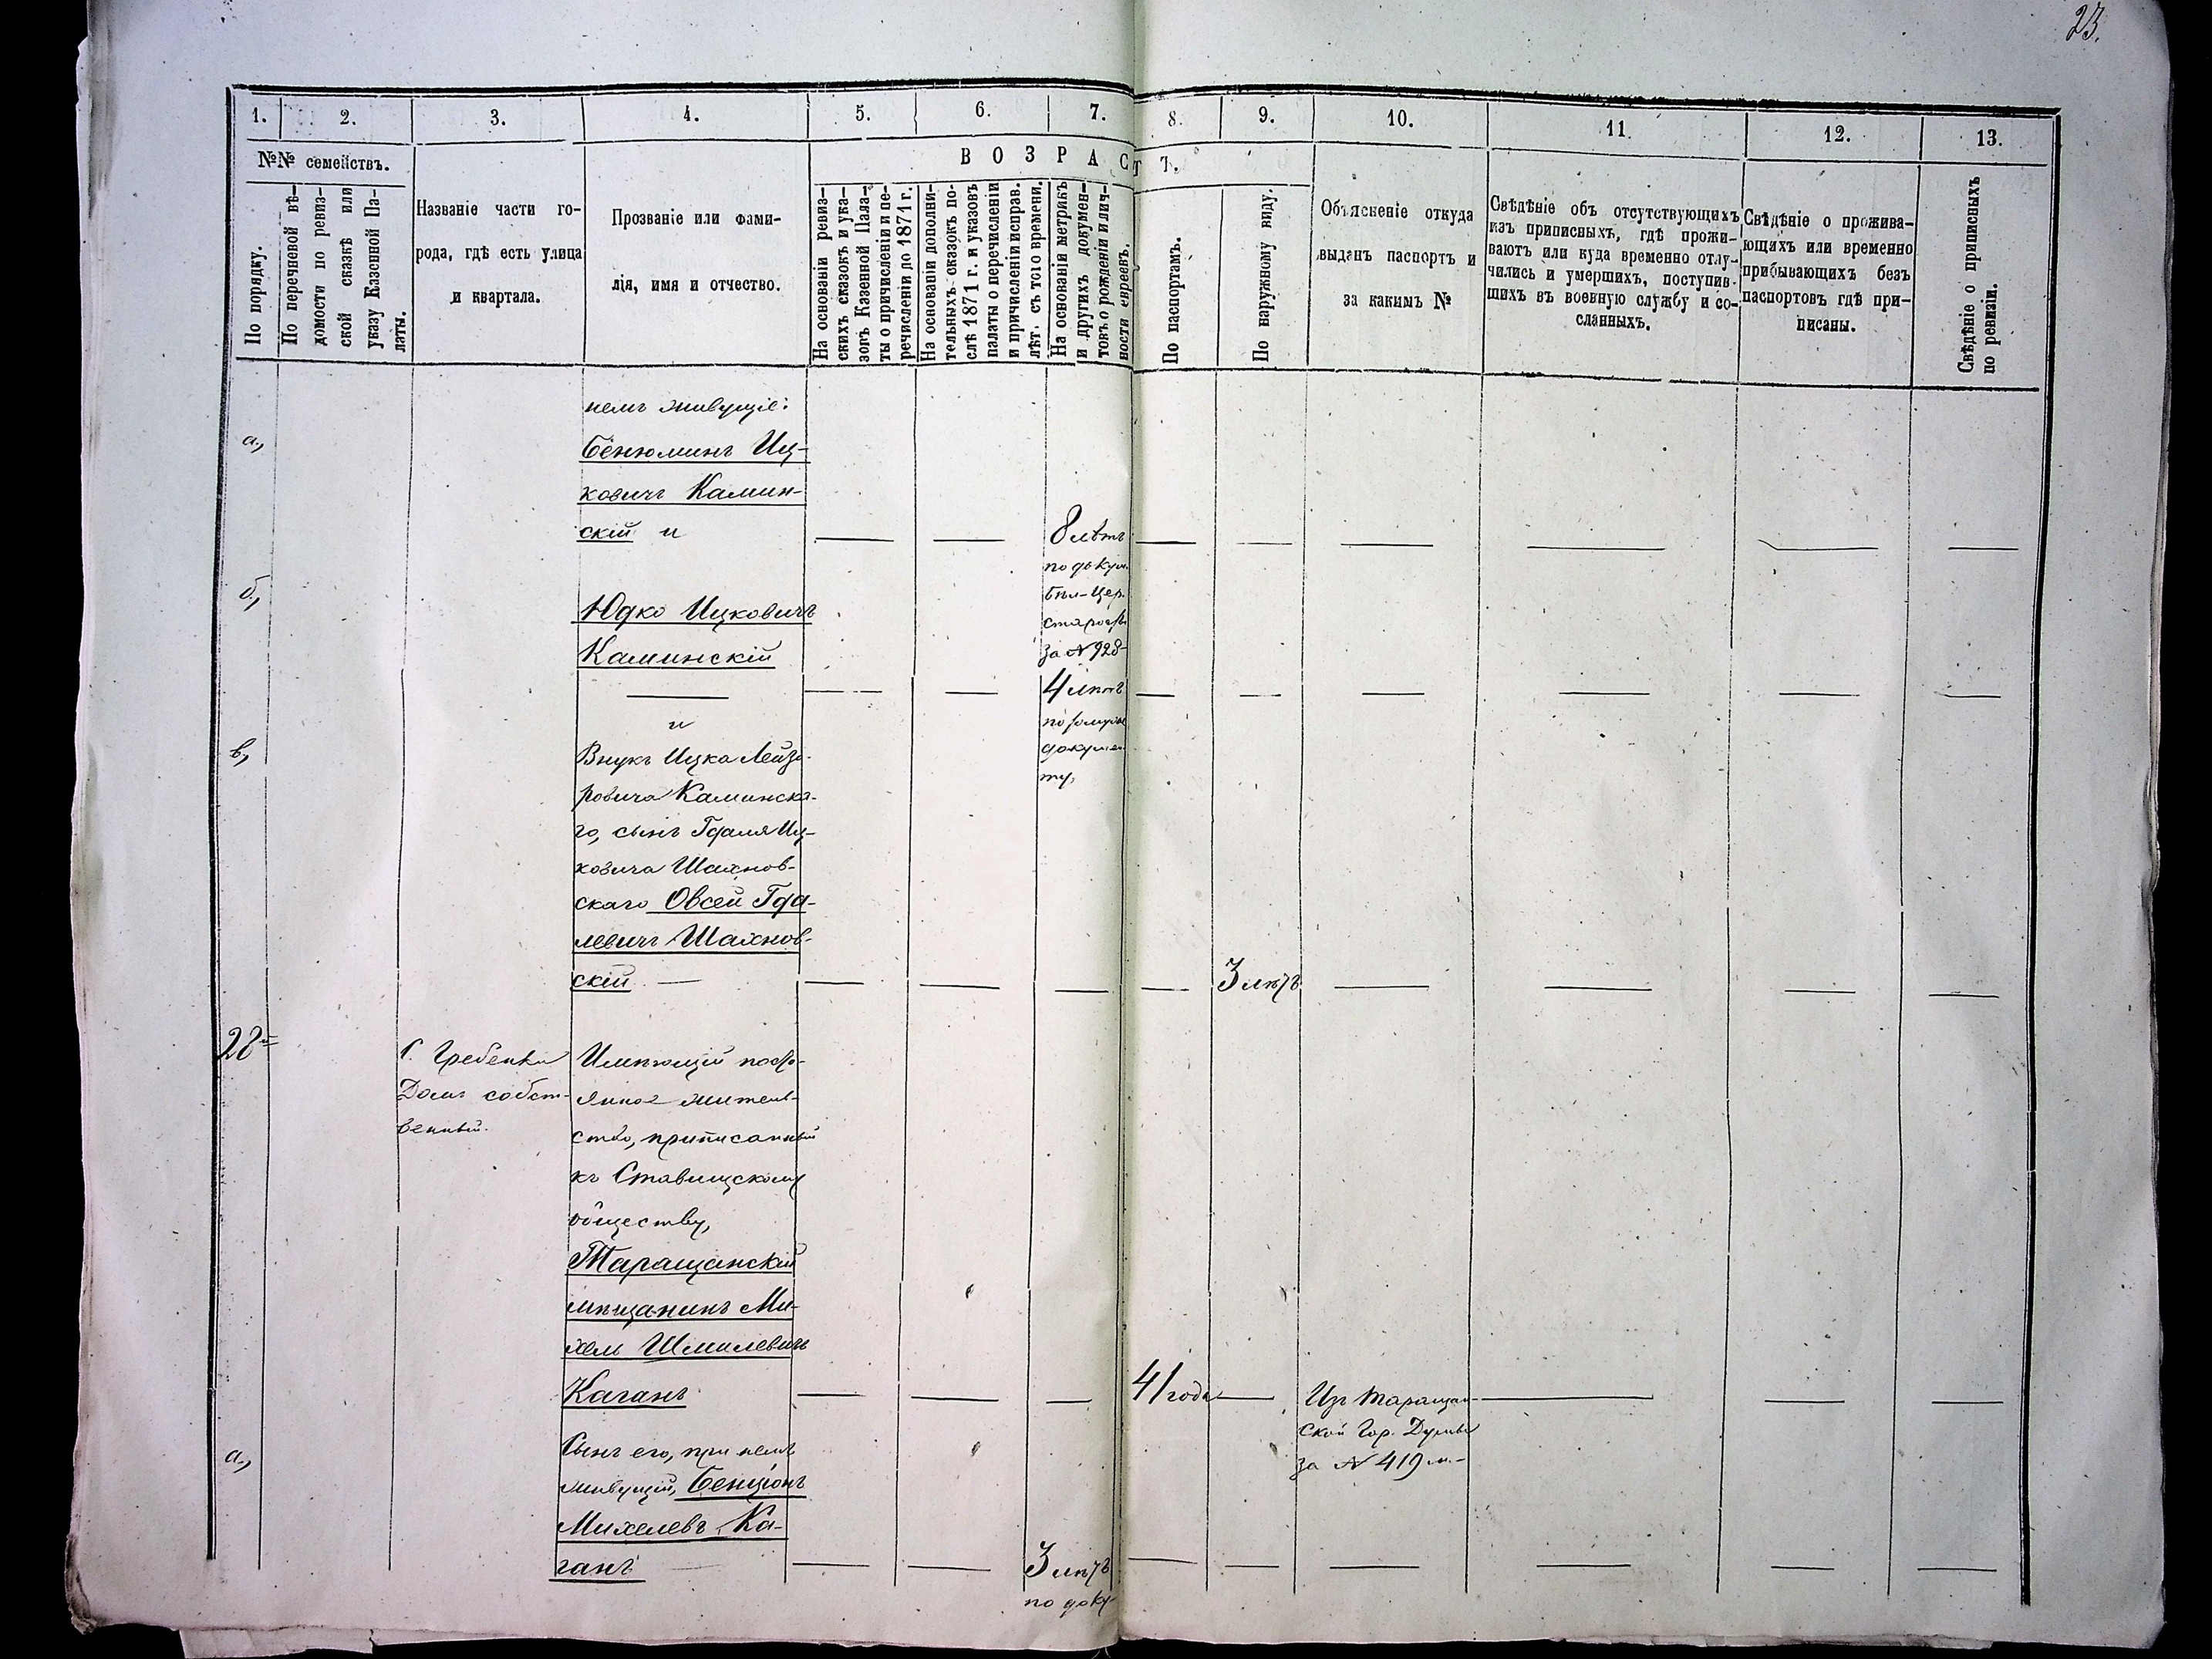 23.
1.
2.
3.
4.
5.
6.
7.
8.
9.
10.
11.
12.
13.
№№ семействъ.
ВОЗРАСТЪ.
По порядку.
По перечневой вѣ-
домости по ревиз-
ской сказкѣ или
указу Казенной Па-
латы.
Названіе части го-
рода, гдѣ есть улица
и квартала.
Прозваніе или фами-
лія, имя и отчество.
На основаніи ревиз-
скихъ сказокъ и ука-
зовъ Казенной Пала-
ты о причисленіи и пе-
речисленіи до 1871 г.
На основаніи дополни-
тельныхъ сказокъ по-
слѣ 1871 г. и указовъ
палаты о перечисленіи
и причисленіи исправ.
лѣт. съ того времени.
На основаніи метрикъ
и другихъ докумен-
товъ о рожденіи и лич-
ности евреевъ.
По паспортамъ.
По наружному виду.
Объясненіе откуда
выданъ паспортъ и
за какимъ №
Свѣдѣніе объ отсутствующихъ
изъ приписныхъ, гдѣ прожи-
ваютъ или куда временно отлу-
чились и умершихъ, поступив-
шихъ въ военную службу и со-
сланныхъ.
Свѣдѣніе о прожива-
ющихъ или временно
прибывающихъ безъ
паспортовъ гдѣ при-
писаны.
Свѣдѣніе о приписныхъ
по ревизіи.
немъ живущіе:
а,
Бенюминъ Иц-
ковичъ Камин-
скій и
8 лѣтъ
по докум.
Бѣл-Цер.
старост.
за № 928
б,
Юдко Ицковичъ
Каминскій
4 лѣтъ
по
докумен-
ту,
и
в,
Внукъ Ицка Лейзе-
ровича Каминска-
го, сынъ Гдаля Иц-
ковича Шахнов-
скаго Овсей Гда-
левичъ Шахнов-
скій
3 лѣтъ
28
С. Гребенки
Домъ собст-
венный.
Имѣющій посто-
янное житель-
ство, приписанный
къ Ставищскому
обществу,
Таращанскій
мѣщанинъ Ми-
хель Шмилевичъ
Каганъ
41 года
Изъ Таращан-
ской Гор. Думы
за № 419 м.
а,
Сынъ его, при немъ
живущій, Бенціонъ
Михелевъ Ка-
ганъ
3 лѣтъ
по доку-